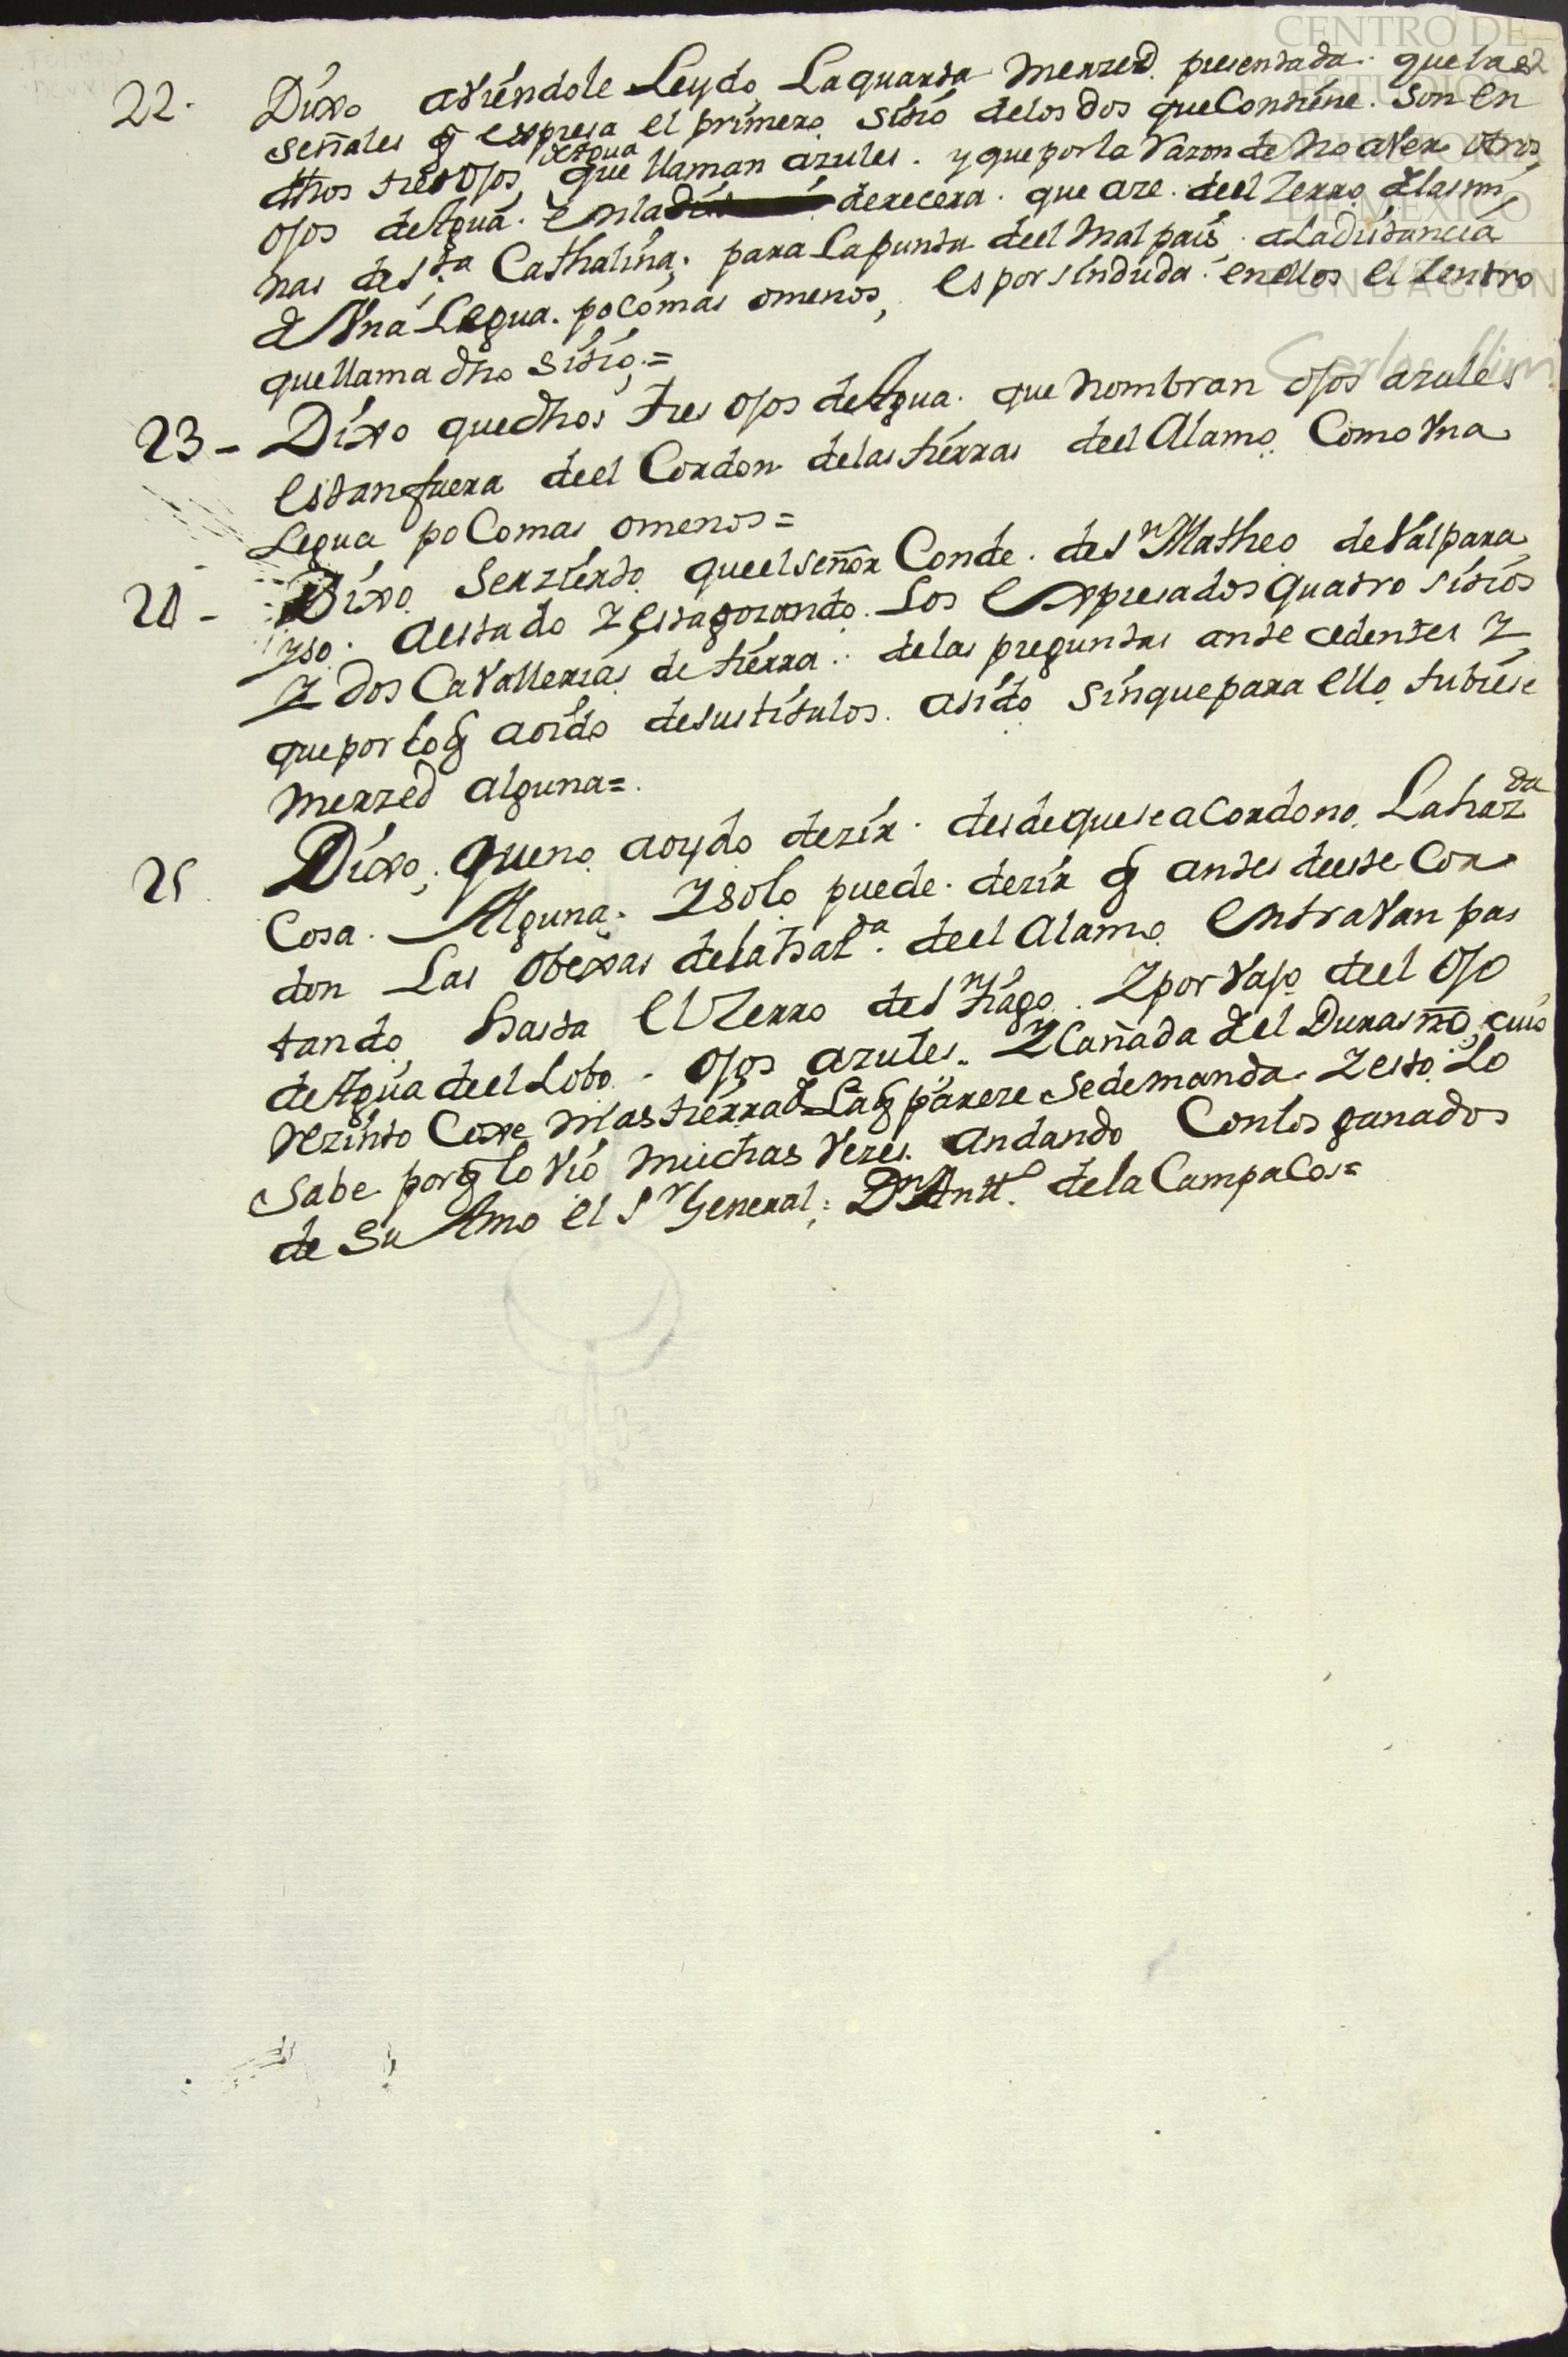 CENTRO DE
ESTUDIOS
DE HISTORIA
DE MEXICO
FUNDACION
Carlos Slim
22. Dixo aviendole Leydo, La quarta Merzed. presentada. que las
señales q̃ expresa el primero sitio delos dos que Contiene. son en
dhos tres ojos de Agua que llaman azules. y que por la razon de no aver otros
ojos de Agua. en la derecera. que aze. deel Zerro de las mi
nas de Sta Cathalina. para La punta deel Mal pais. a La distancia
de Vna Legua. poco mas omenos, es por sin duda. en ellos el Zentro
que llama dho sitio.=
23 - Dixo que dhos tres ojos de Agua. que nombran ojos azules
estan fuera deel Cordon de las tierras deel Alamo. Como Vna
Legua poco mas omenos=
24 - Dixo. Ser zierto que el señor Conde. de Sn Matheo de Valpara
yso. a estado y esta gozando. Los expresados quatro sitios
y dos Cavallerias de tierra. de las preguntas ante cedentes y
que por lo q̃ a oido de sus titulos. a sido sin que para ello tubiese
Merzed alguna=.
25. Dixo, que no a oydo dezir. desde que se a Cordono. La hazda
Cosa. Alguna. y solo puede. dezir q̃ antes de este Cor
don Las obexas de la hazda. deel Alamo. entravan pas
tando hasta el Zerro de Sntiago. y por vajo deel ojo
de Agua deel Lobo. ojos azules.. y Cañada del Durasno, cuio
rezinto Coxe mas tierra de La q̃ pareze se demanda. y esto. Lo
Sabe porq̃ lo vio muchas vezes. andando Con los ganados
de Su Amo el Sr General, Dn Antt.o de la Campa Cos=